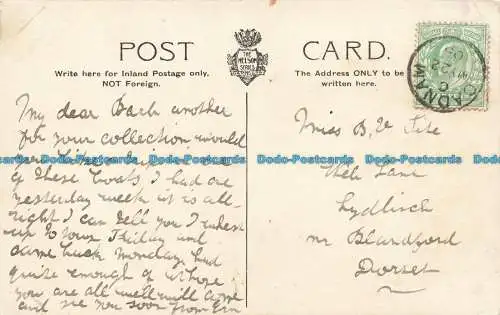 POST CARD.
THE NELSON SERIES
Write here for Inland Postage only,
NOT Foreign.
The Address ONLY to be
written here.
CADNAM
My dear Bach another
for your collection, would
you like
of these boats I had one
yesterday week it is all-
right I can tell you I went
up to town Friday and
came back Monday, had
quite enough of it hope
you are all well will come
and see you soon from Ern
Miss B, Ve
Lane
Lydlinch
nr Blandford
Dorset
Dodo-Postcards Dodo-Postcards Dodo-Postcards Dodo-Postcards